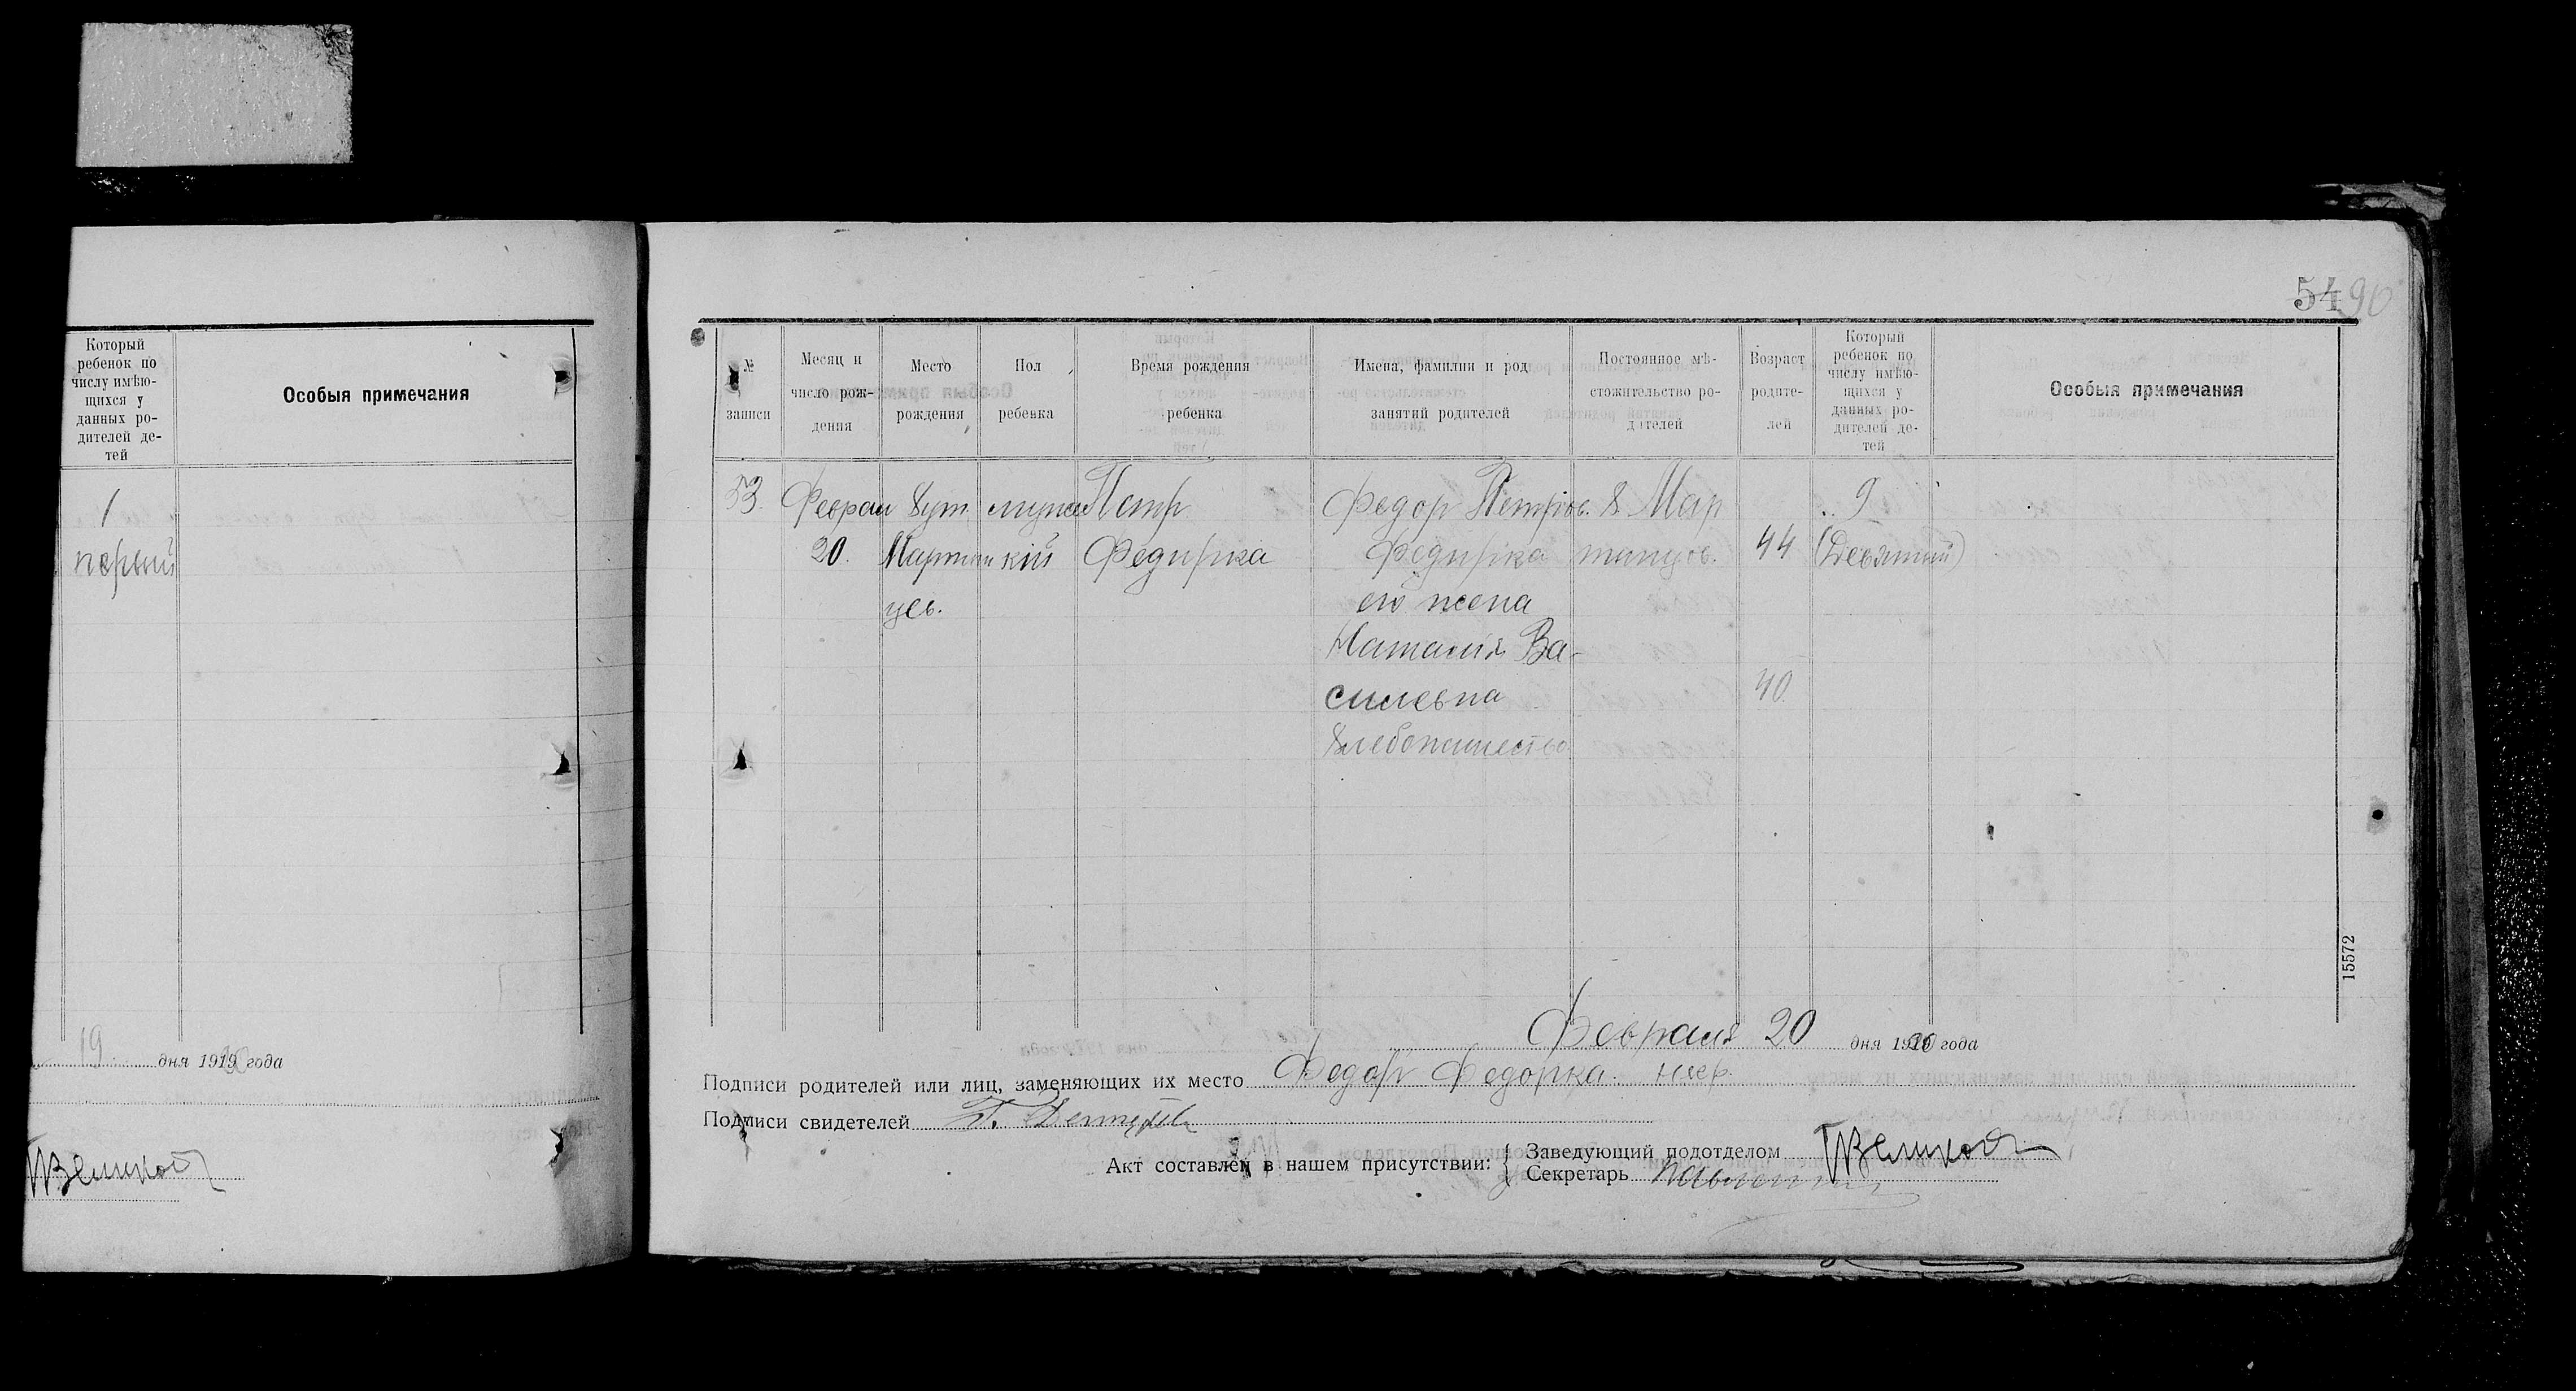 Который
ребенок по
числу имѣю-
щихся у
данных ро-
дителей де-
тей
Особыя примечания
1
перьвий
19 дня 1919 года
54 90
№
записи
Месяц и
число рож-
дения
Место
рождения
Пол
ребенка
Время рождения
ребенка
Имена, фамилии и род
занятий родителей
Постоянное мѣ-
стожительство ро-
дителей
Возраст
родите-
лей
Который
ребенок по
числу имѣю-
щихся у
данных ро-
дителей де-
тей
Особыя примечания
53.
Феврал
20.
Хут.
Мартин
цев.
мужс
кій
Петр
Федирка
Федор Петров.
Федирка
его жена
Наталия Ва-
силевна
Хлебопашество
Х Мар
тинцов.
44
40.
9
(Девятий)
15572
Февраля 20 дня 1920 года
Подписи родителей или лиц, заменяющих их место Федор Федорка
Подписи свидетелей
Акт составлен в нашем присутствии:
Заведующий подотделом
Секретарь